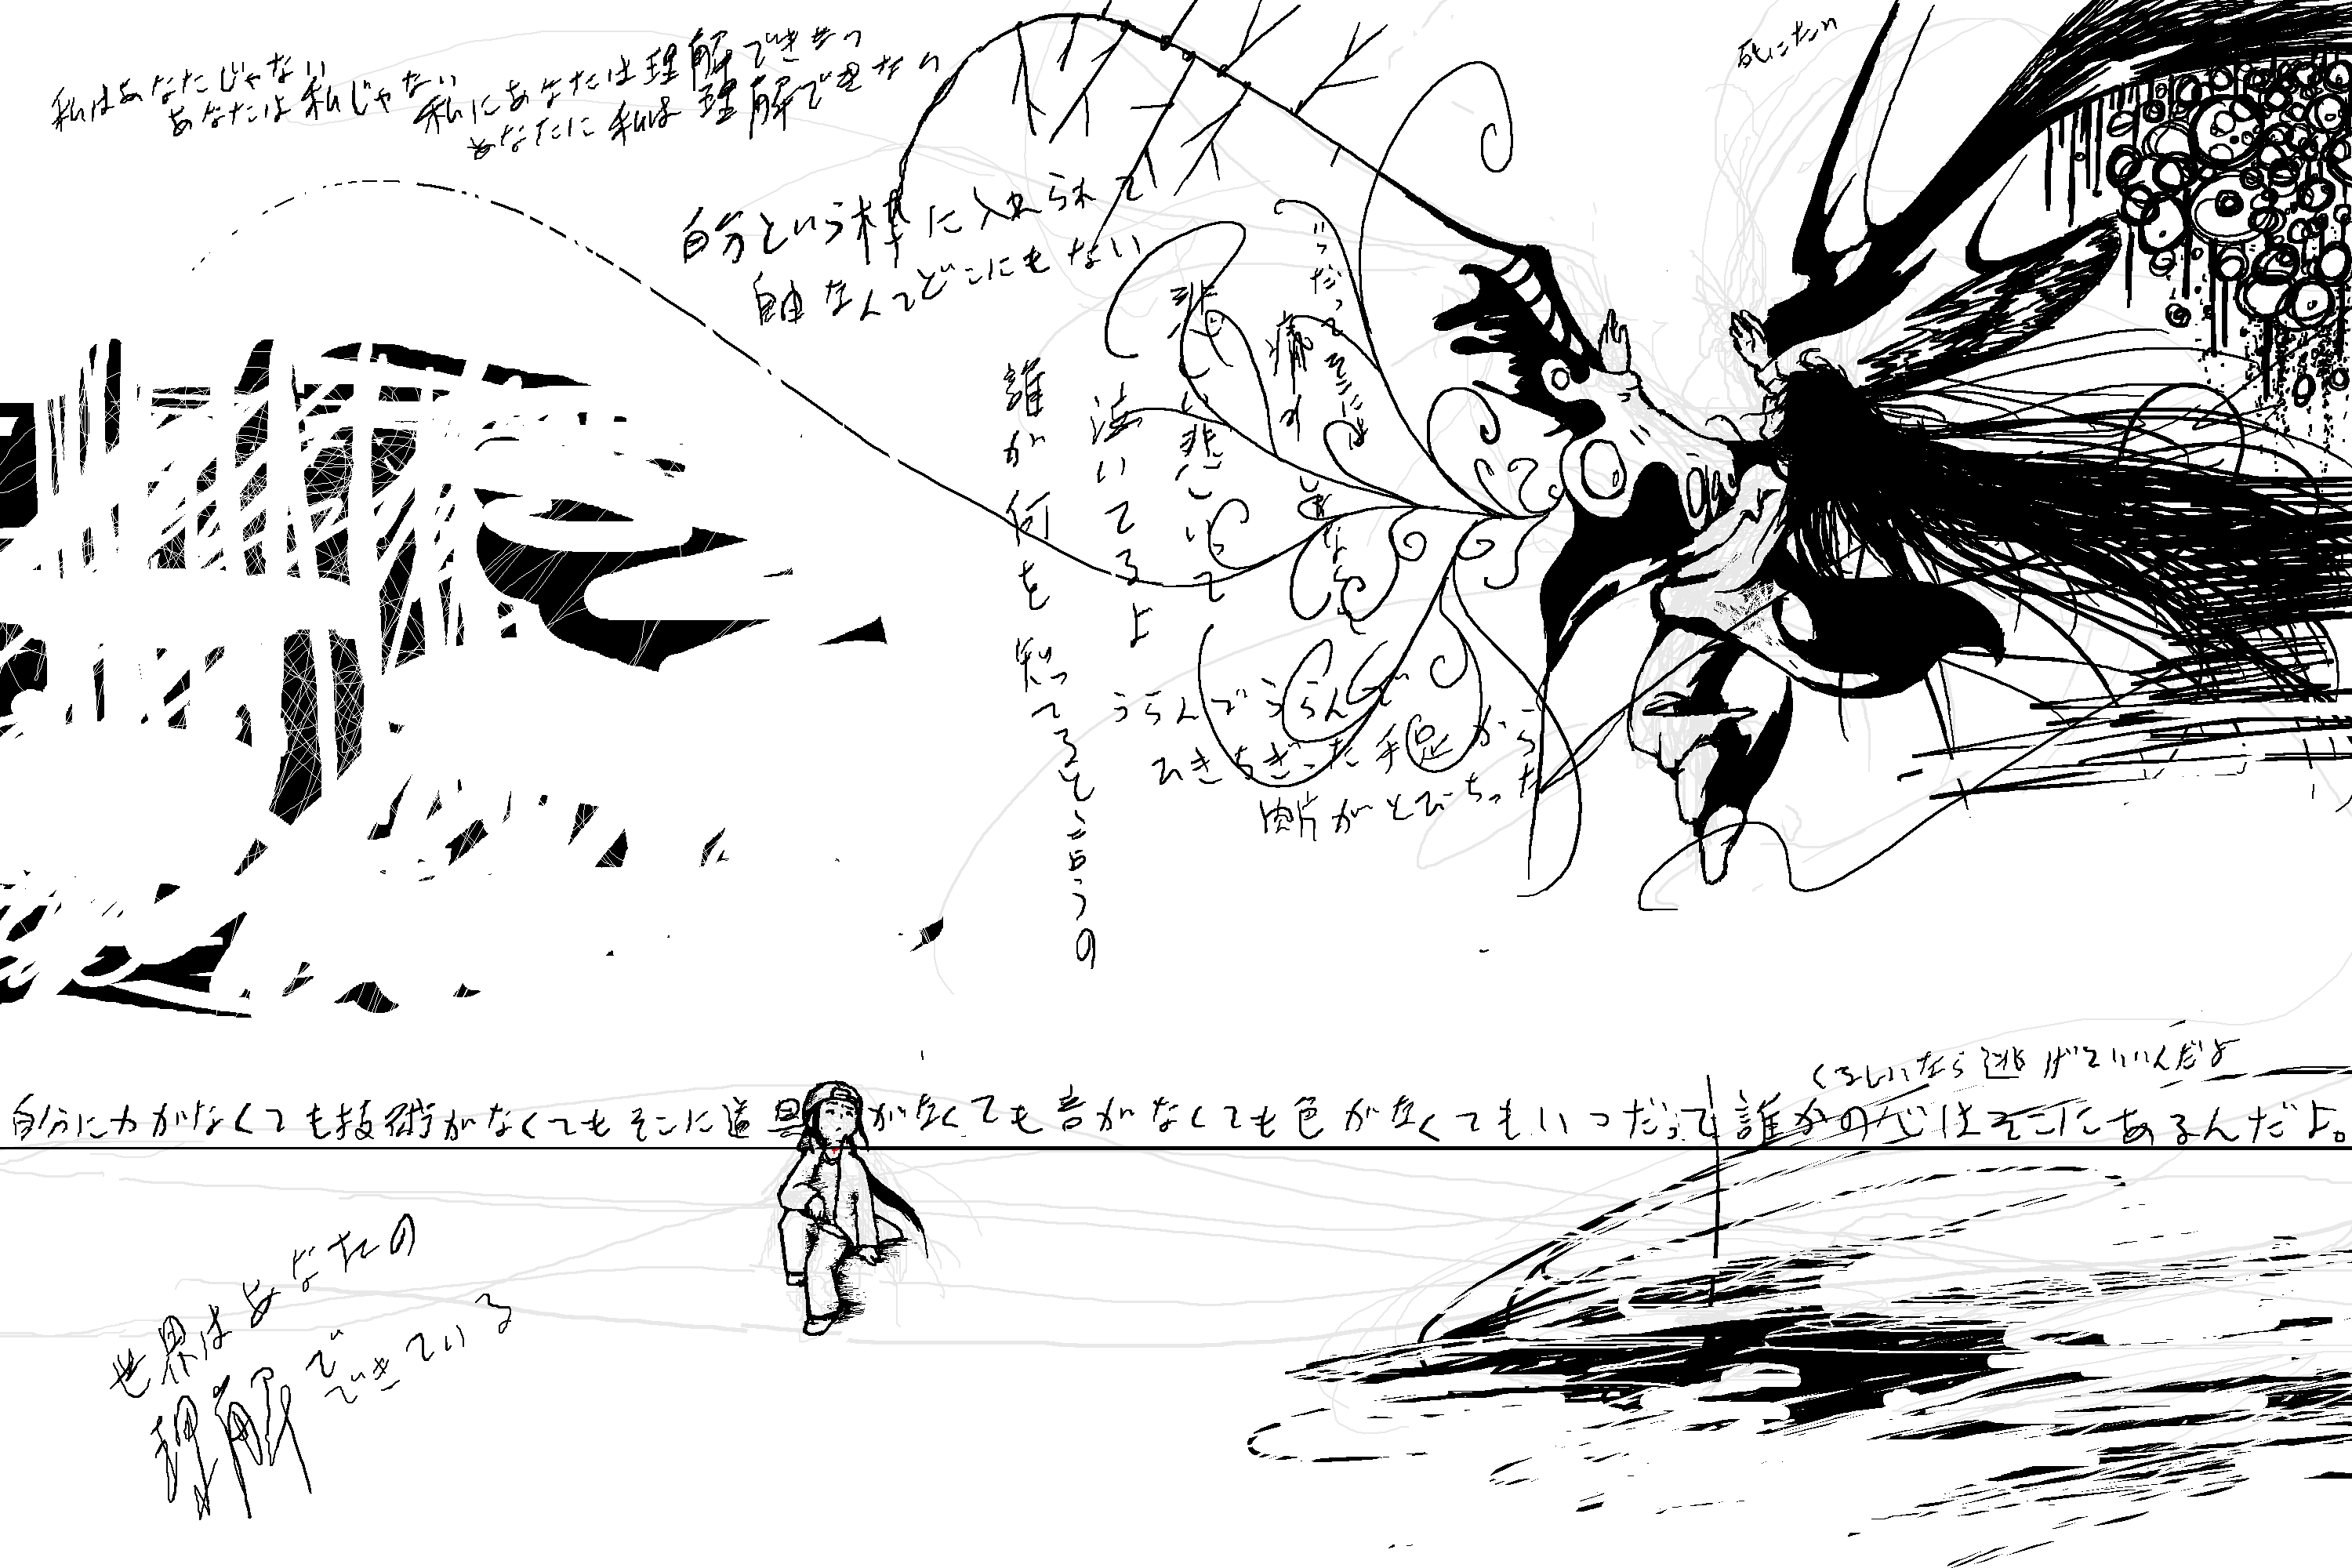 私はあなたじゃない
あなたは私じゃない
私にあなたは理解できない
あなたに私は理解できない
死にたい
自分という枠に入れられて
自由なんてどこにもない
いつだってそこには
痛み
悲しい悲しいって
泣いてるよ
誰が何を知ってると言うの
うらんでうらんで
ひきちぎった手足から
肉片がとびちった
くるしいなら逃げていいんだよ
自分に力がなくても技術がなくてもそこに道具がなくても音がなくても色がなくてもいつだって誰かの心はそこにあるんだよ。
世界はあなたの
理解で
できている